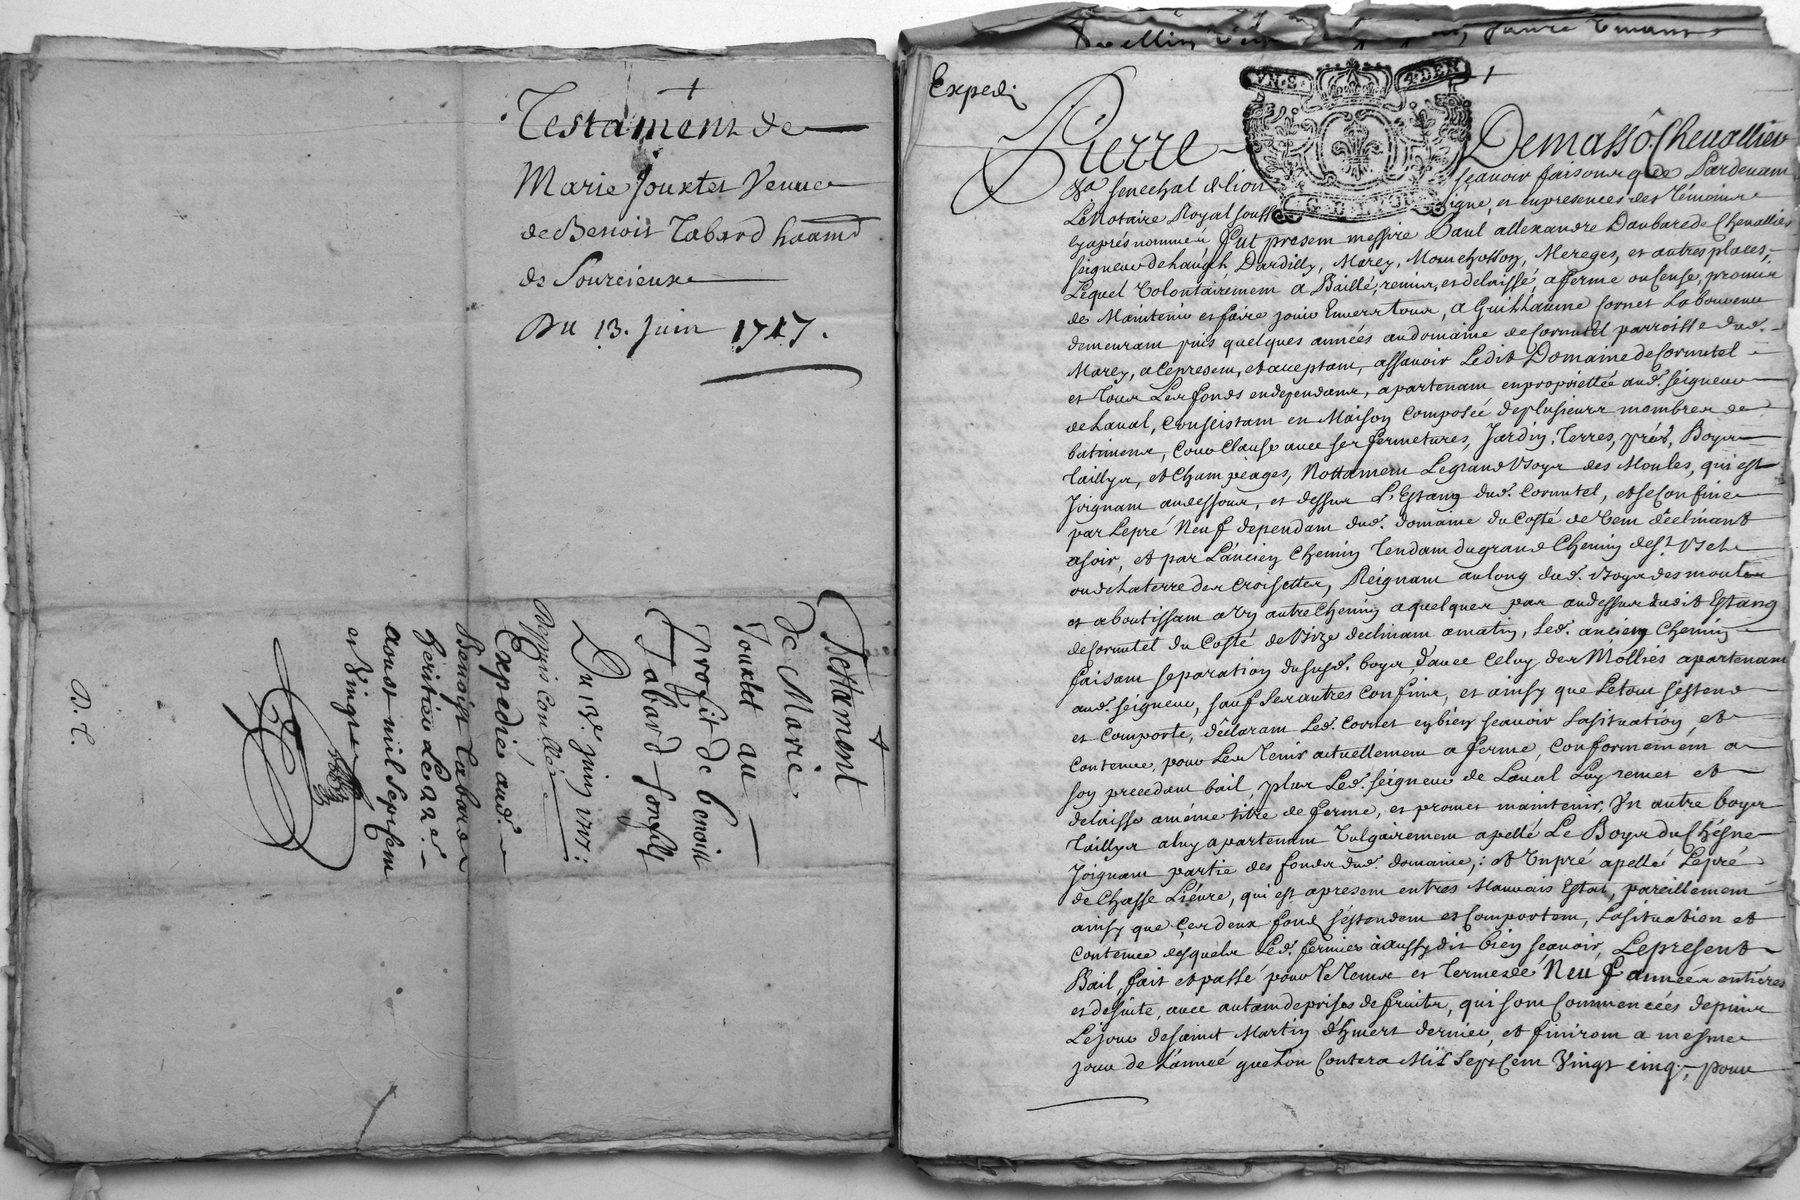 Testament de
Marie Jouxtet Veuve
de Benoit Tabard haamd
de Sourcieux
Du 13. Juin 1717.
Testament
de Marie
Jouxtet au
proffit de benoist
Tabard son fils
Du 13e. juin 1717:
Expediée aud.
Benoist Tabard
heritier Le 22e.
aoust mil sept cent
et vingt
D. C.
Exped.
VN. S. 4. DEN
G. D. LYON
Pierre Demasso Chevallier
Senechal de lion scavoir faisons que Pardevant
Le Notaire Royal souss igné, et en presences des Témoins
cy aprés nommés, fut present messire Paul allexandre Daubarede Chevallier
seigneur de Dardilly, Marcy, Montchosson, Mereges, et autres places,
Lequel Volontairement a Baillé, remis, et delaissé, a ferme ou Cense, promis
de Maintenir et faire jouir Envers tous, a Guillaume Cornet Laboureur
demeurant puis quelques années au domaine de Cornutel parroisse dud.
Marcy, a Ce present, et aceptant, assavoir Ledit Domaine de Cornutel
et Tous Les fonds en dependans, apartenant en propriettée aud. seigneur
de Laval, Consistant en Maison Composée de plusieurs membres de
batimens, Cour Clause avec ses fermetures, Jardin, Terres, prés, Boys
Taillys, et Champéages, Nottament Le grand Boys des Moules, qui est
Joignant au dessous, et dessus L'Estang dud. Cornutel, et se Confine
par Le pré Neuf dependant dud. domaine du Costé de Vent déclinant
a soir, et par L'ancien Chemin Tendant du grand Chemin de St.
ou de la terre des Croisettes, Reignant au long dud. Boys des moules
et aboutissant a Un autre Chemin a quelques pas au dessus dudit Estang
de Cornutel du Costé de Bize declinant a matin, Led. ancien Chemin
faisant separation du susd. boys d'avec Celuy des Molliés apartenant
aud. seigneur, sauf Ses autres Confins, et ainsy que Le tout s'estend
et Comporte, déclarant Led. Cornet en bien scavoir La situation, et
Contenue, pour Les Tenir actuellement a ferme, Conformément a
son precedant bail, plus Led. seigneur de Laval Luy remet et
delaisse a méme titre de ferme, et promet maintenir, Un autre boys
Taillys a luy apartenant Vulgairement apellé Le Boys du Chésne
Joignant partie des fonds dud. domaine,: et Un pré apellé Le pré
de Chasse Liévre, qui est a present en tres Mauvais Estat, pareillement
ainsy que Ces deux fond s'éstendent et Comportent, La situation et
Contenue desquels Led. fermier à aussy dit bien scavoir, Le present
Bail, fait et passé pour Le Temps et Terme de Neuf années entiéres
et de suite, avec autant de prises de fruits, qui sont Commencées depuis
Le jour de saint Martin d'hivert dernier, et finiront a mesme
jour de L'année que L'on Contera Mil Sept Cent Vingt Cinq; pour